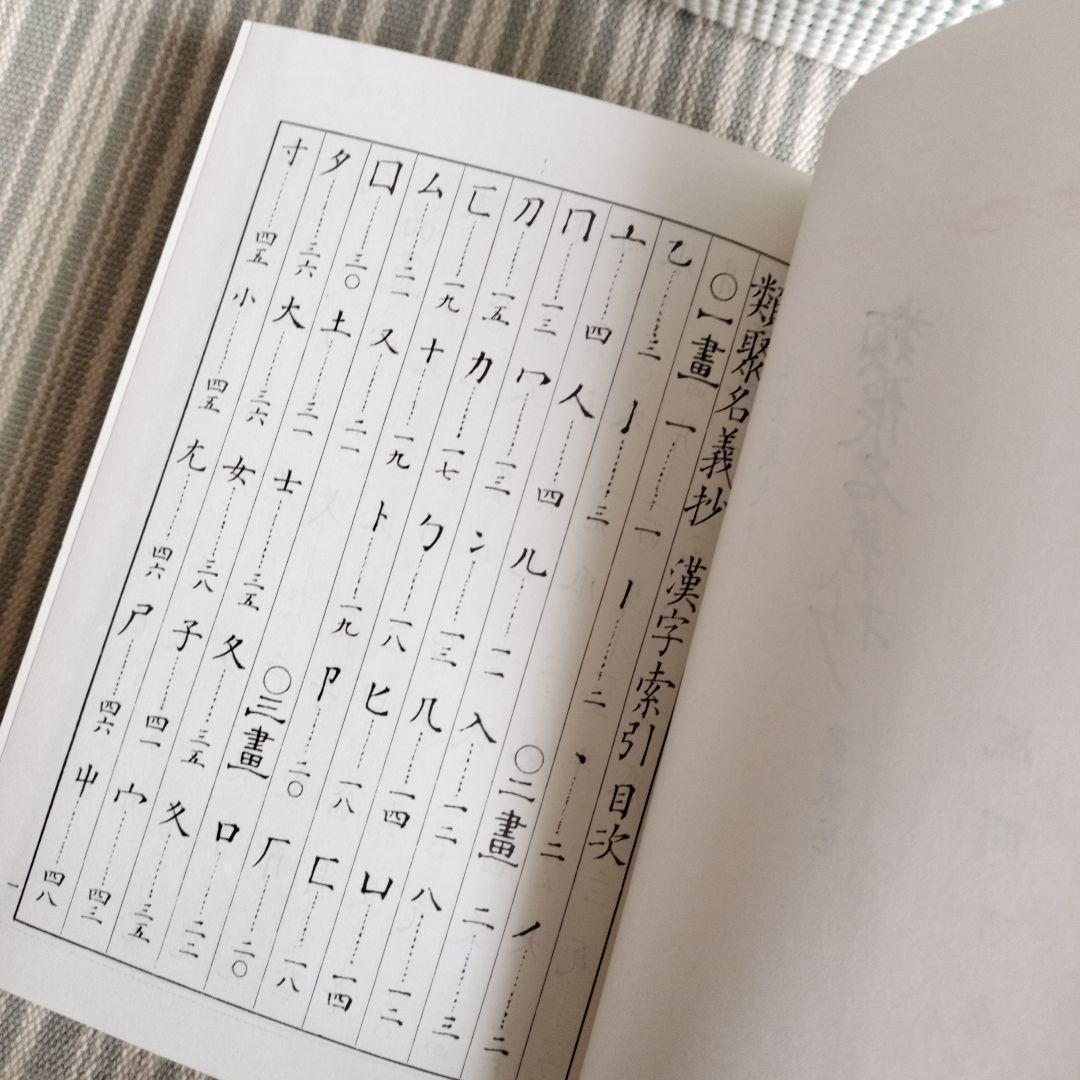 類聚名義抄 漢字索引 目次
〇一畫 一……一 丨……二 丶……二 丿……二
乙……三 亅……三 〇二畫 二……三
亠……四 人……四 儿……一二 入……一二 八……一三
冂……一三 冖……一三 冫……一三 几……一四 凵……一四
刀……一五 力……一七 勹……一八 匕……一八 匚……一八
匸……一九 十……一九 卜……一九 卩……二〇 厂……二〇
厶……二一 又……二一 〇三畫 口……二二
囗……三〇 土……三一 士……三五 夂……三五 夊……三五
夕……三六 大……三六 女……三八 子……四一 宀……四三
寸……四五 小……四五 尢……四六 尸……四六 屮……四八
一